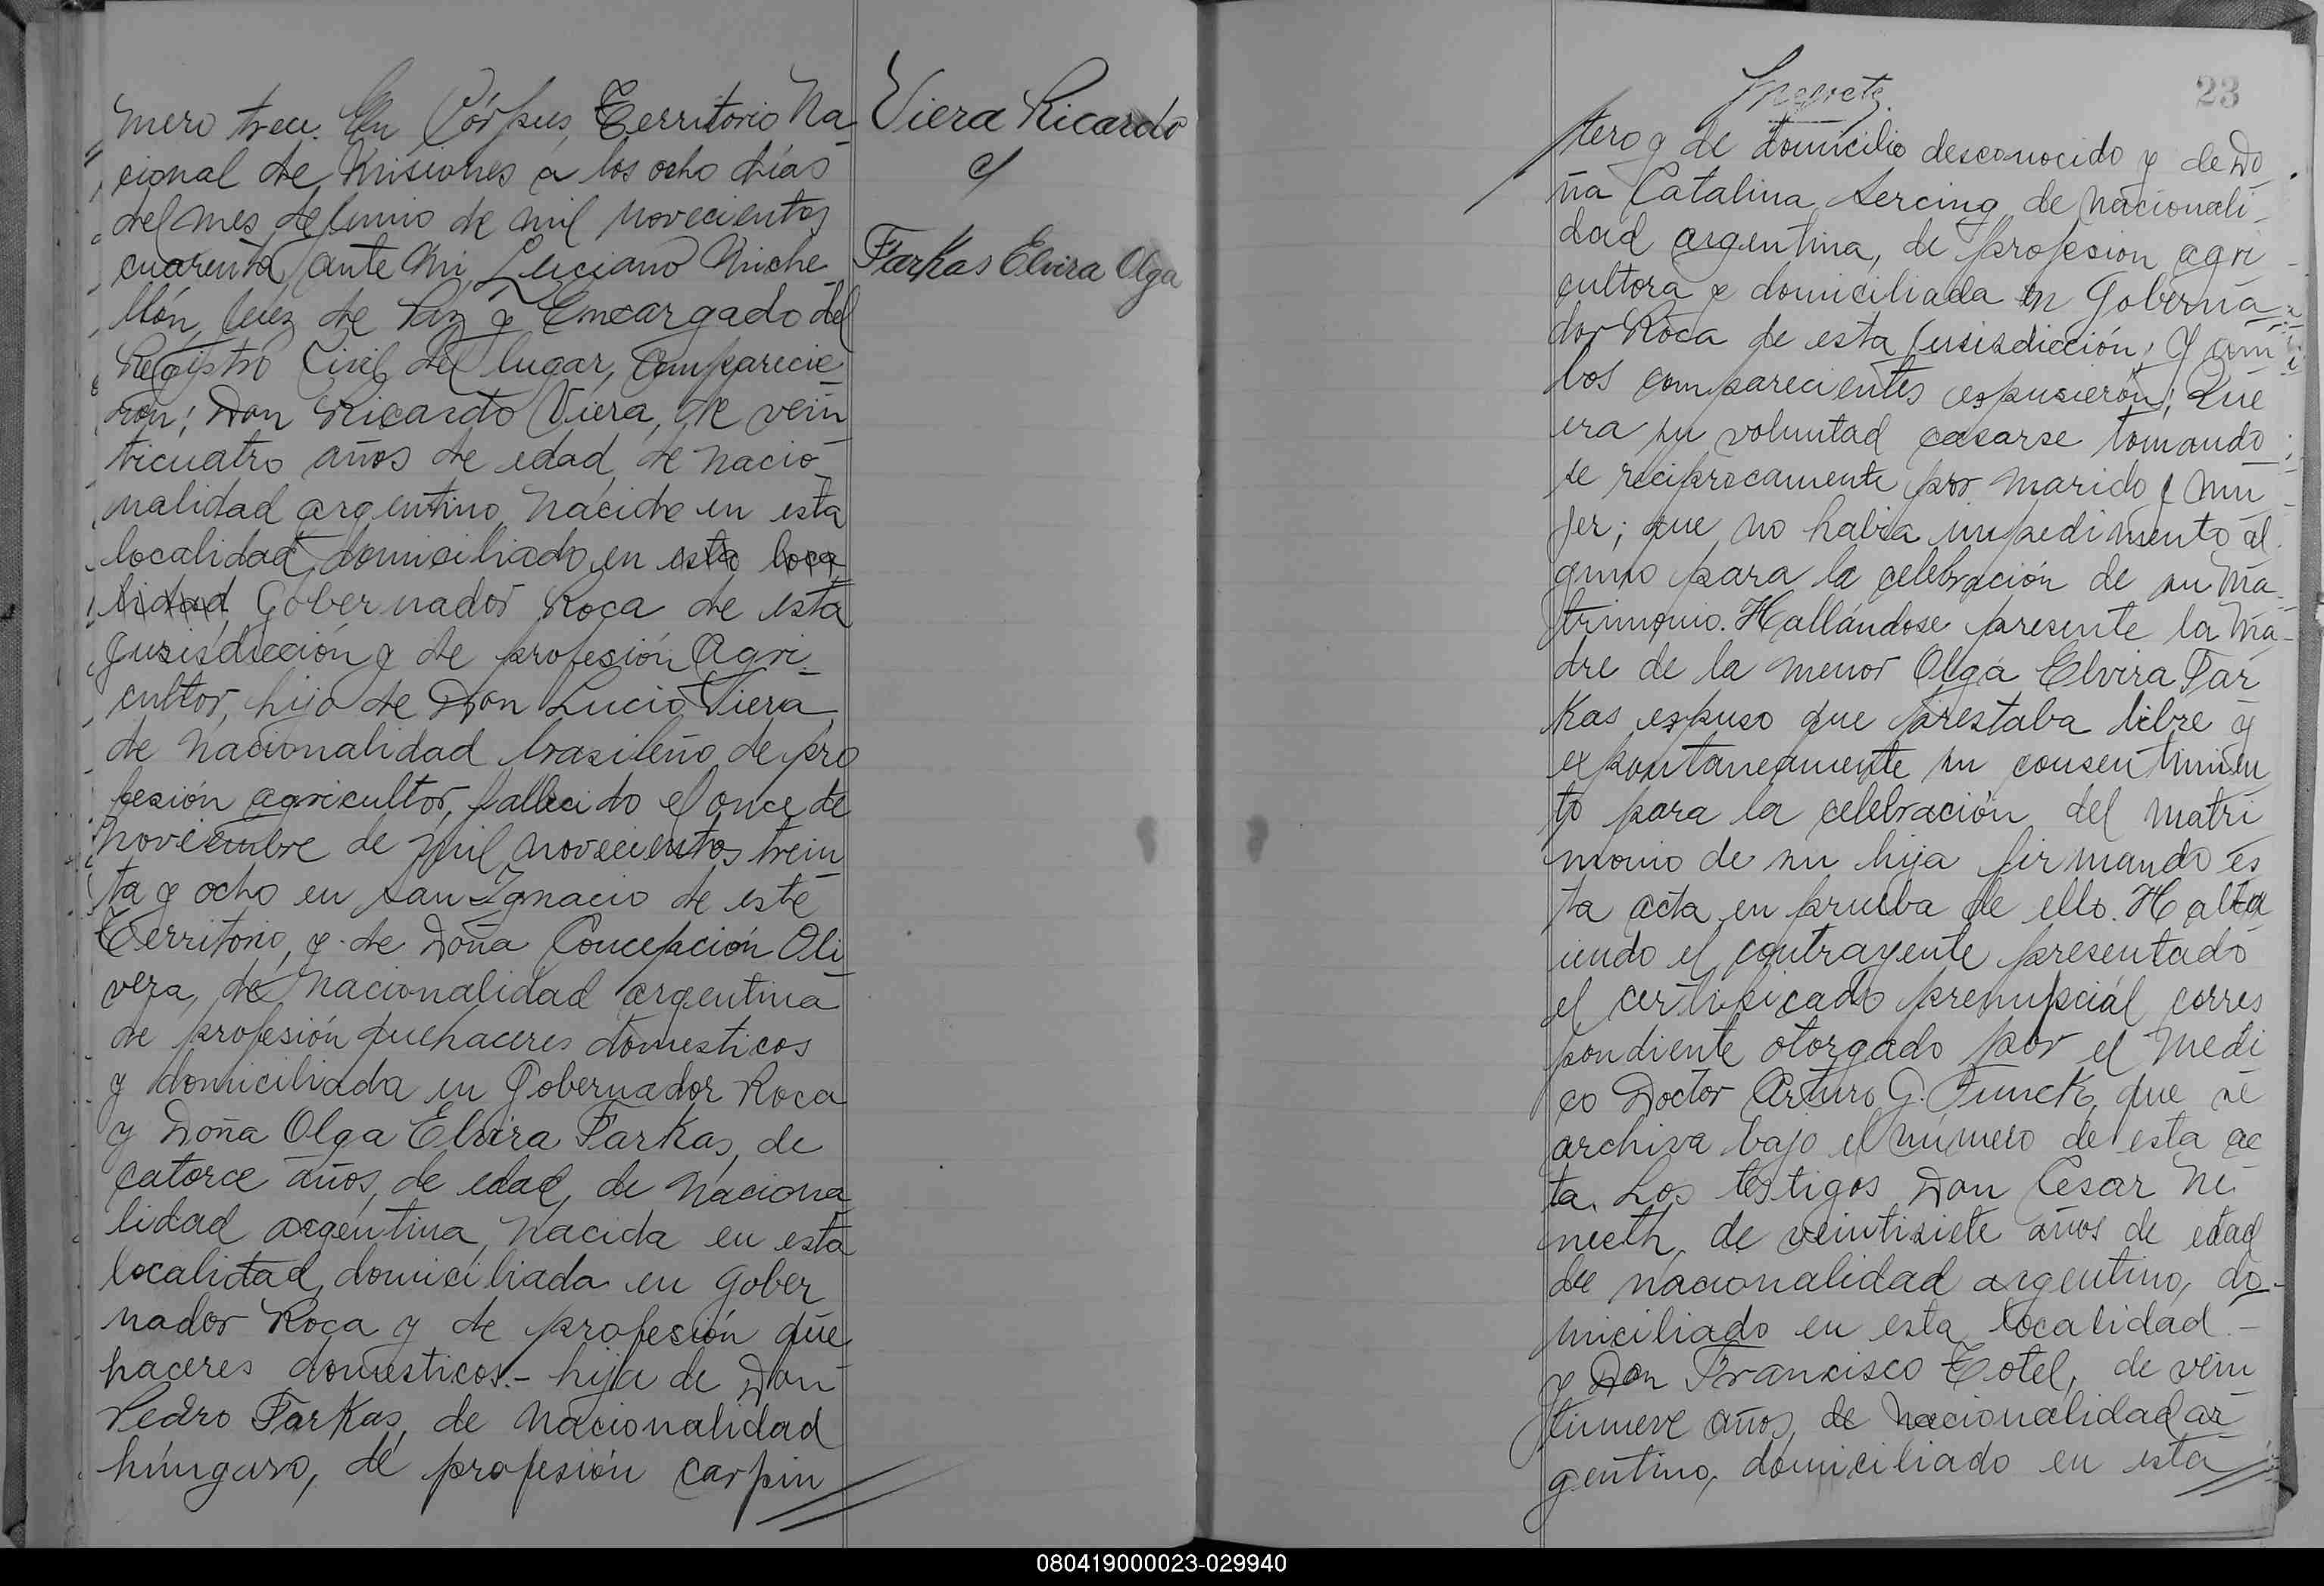 mero trece. En Córpus, Territorio Na
cional de Misiones a los ocho días
del mes de Junio de mil novecientos
cuarenta, ante mi, Luciano Miche
llón, Juez de Paz y Encargado del
Registro Civil del lugar, comparecie
ron; Don Ricardo Viera, de vein
ticuatro años de edad, de nacio
nalidad argentino, nacido en esta
localidad, domiciliado en esta loca
lidad Gobernador Roca de esta
Jurisdicción y de profesión Agri
cultor, hijo de Don Lucio Viera,
de nacionalidad brasileño, de pro
fesión agricultor, fallecido el once de
noviembre de mil novecientos trein
ta y ocho en San Ignacio de este
Territorio, y de Doña Concepción Oli
vera, de nacionalidad argentina
de profesión quehaceres domesticos
y domiciliada en Gobernador Roca
y Doña Olga Elvira Farkas, de
catorce años, de edad, de naciona
lidad argentina, nacida en esta
localidad, domiciliada en Gober
nador Roca y de profesión que
haceres domesticos.- hija de Don
Pedro Farkas, de nacionalidad
húngaro, de profesión carpin
Viera Ricardo
c/
Farkas Elvira Olga
23
tero y de domicilio desconocido y de Do
ña Catalina Sercing de nacionali
dad argentina, de profesion agri
cultora y domiciliada en Goberna
dor Roca de esta Jurisdicción; Y am
bos comparecientes expusierón; Que
era su voluntad casarse tomando
se reciprocamente por marido y mu
jer; que no habia impedimento al
guno para la celebración de su ma
trimonio. Hallándose presente la ma
dre de la menor Olga Elvira Far
Kas expuso que prestaba libre y
expontaneamente su consentimien
to para la celebración del matri
monio de su hija firmando es
ta acta en prueba de ello.
iendo el contrayente presentado
el certificado prenupciál corres
pondiente otorgado por el medi
co Doctor Arturo G. Funck, que se
archiva bajo el número de esta ac
ta. Los testigos Don Cesar Ne
meth, de veintisiete años de edad
de nacionalidad argentino, do
miciliado en esta localidad.-
y Don Francisco Totel, de vein
tinueve años, de nacionalidad ar
gentino, domiciliado en esta
080419000023-029940